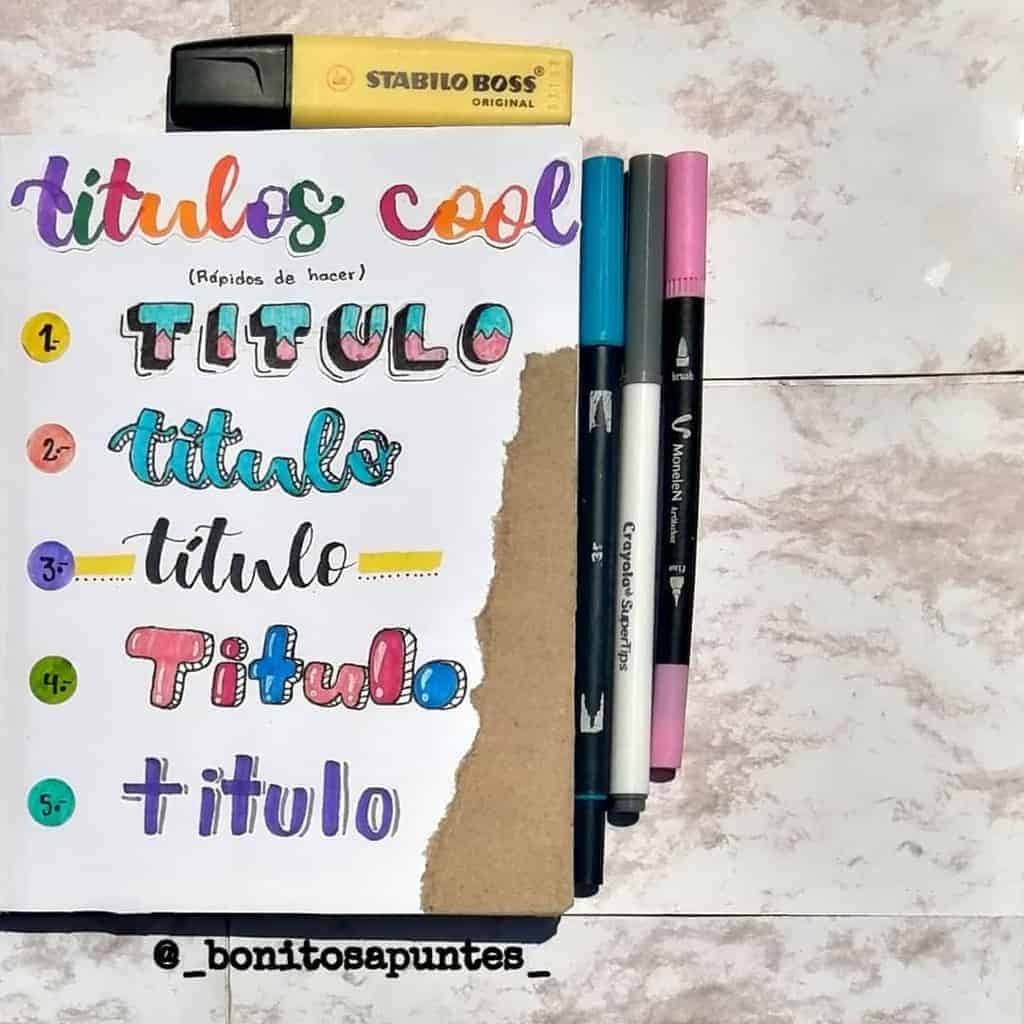 STABILO BOSS®
ORIGINAL
titulos cool
(Rápidos de hacer)
1.- TITULO
2.- titulo
3.- título
4.- Titulo
5.- titulo
brush
MoneleN
Crayola® SuperTips
@_bonitosapuntes_